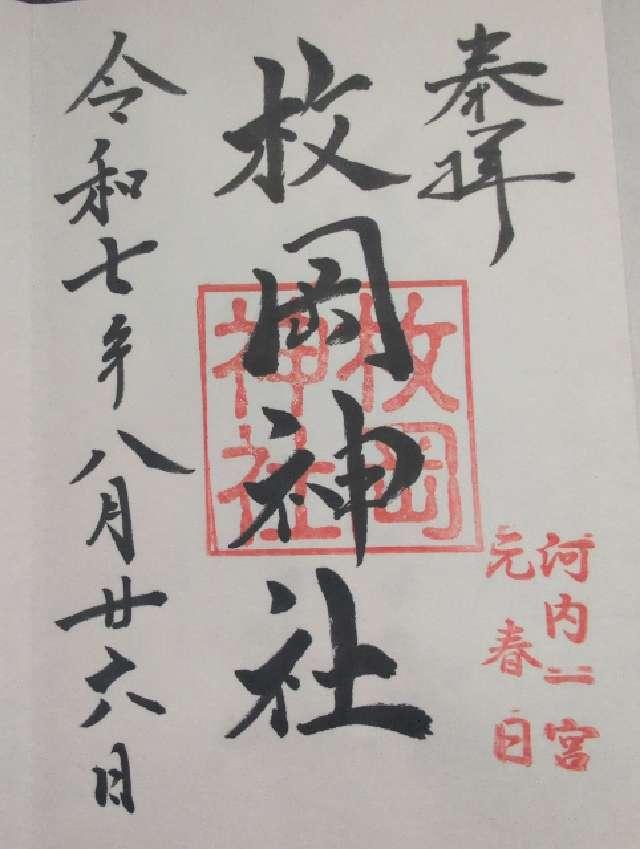 奉拝
枚岡神社
枚岡
神社
河内一宮
元春日
令和七年八月廿六日